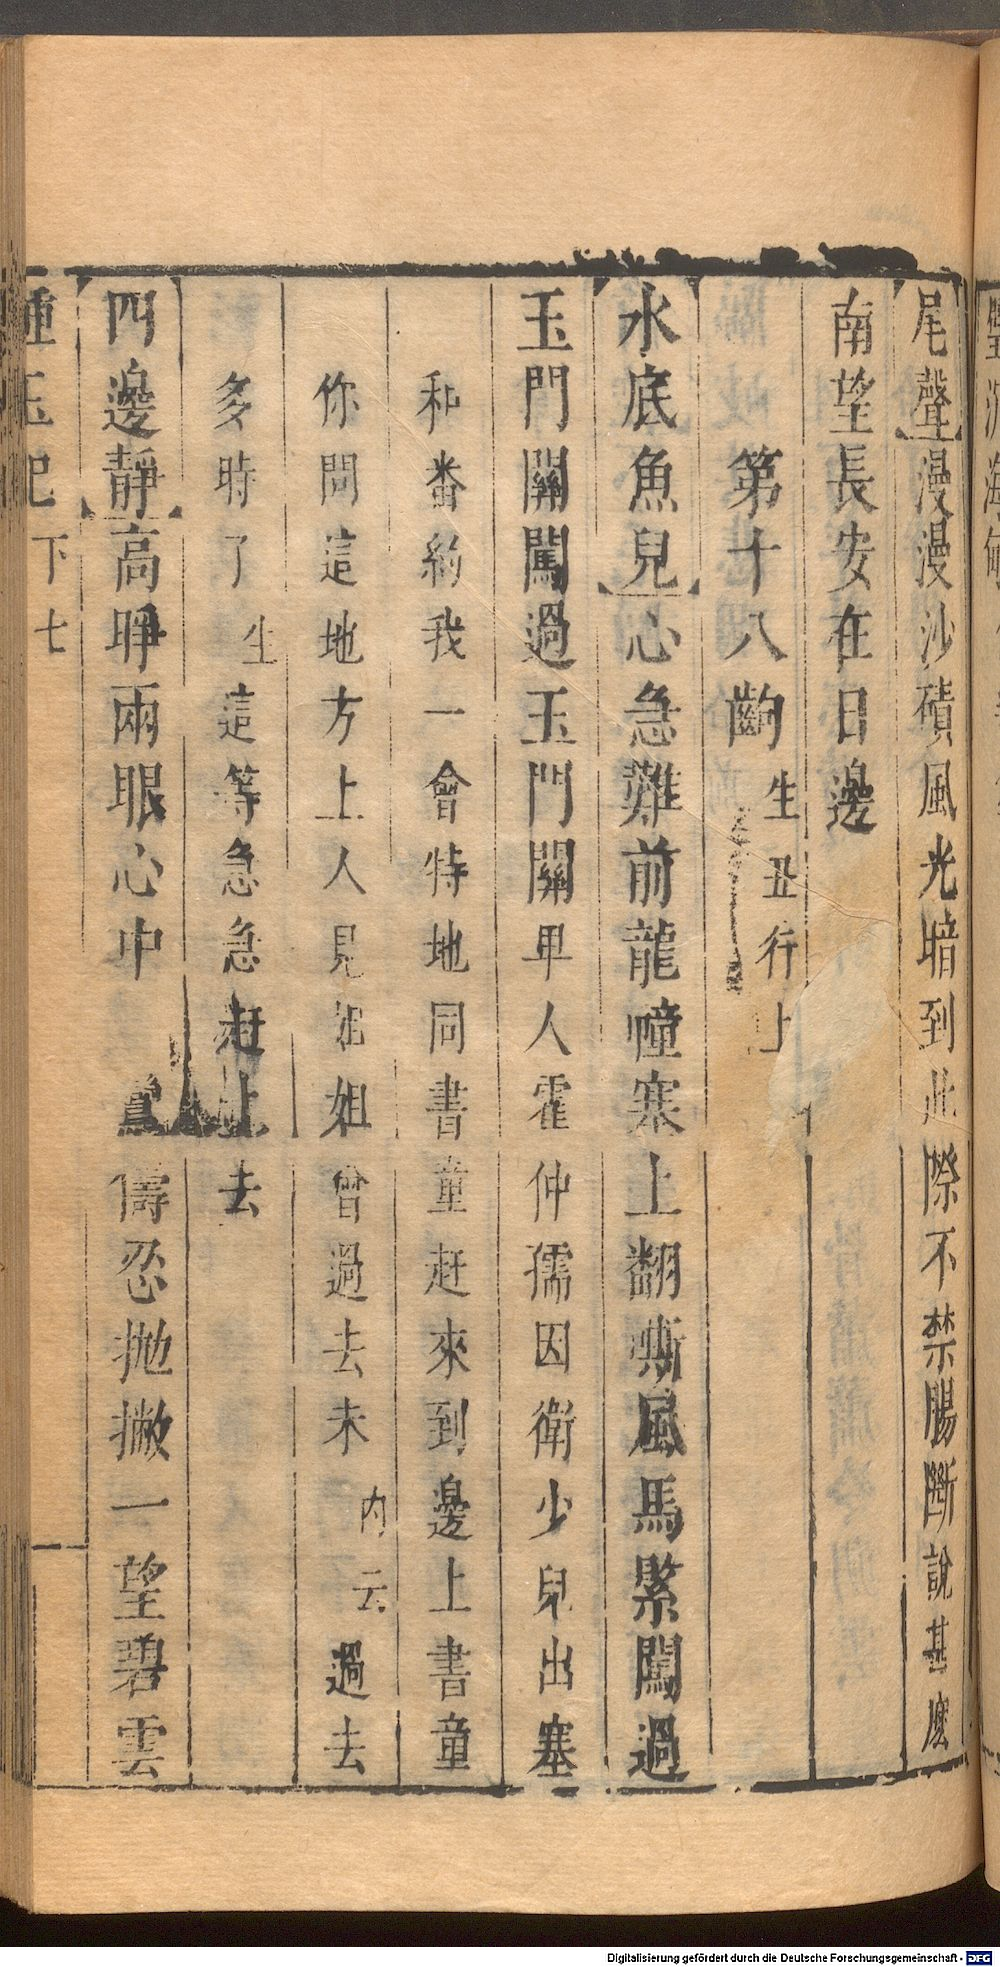 尾聲漫漫沙磧風光暗到此際不禁腸斷說甚麼
南望長安在日邊
第十八齣生丑行上
水底魚兒心急難前龍幢寒上翻嘶風馬緊闖過
玉門關闖過玉門關甲人霍仲孺因衛少兒出塞
和番約我一會特地同書童赶來到邊上書童
你問這地方上人見姐姐曾過去未內云過去
多時了生這等急急赶上去
四邊靜高睜兩眼心中儔忍抛撇一望碧雲
種玉記 下 七
Digitalisierung gefördert durch die Deutsche Forschungsgemeinschaft - DFG